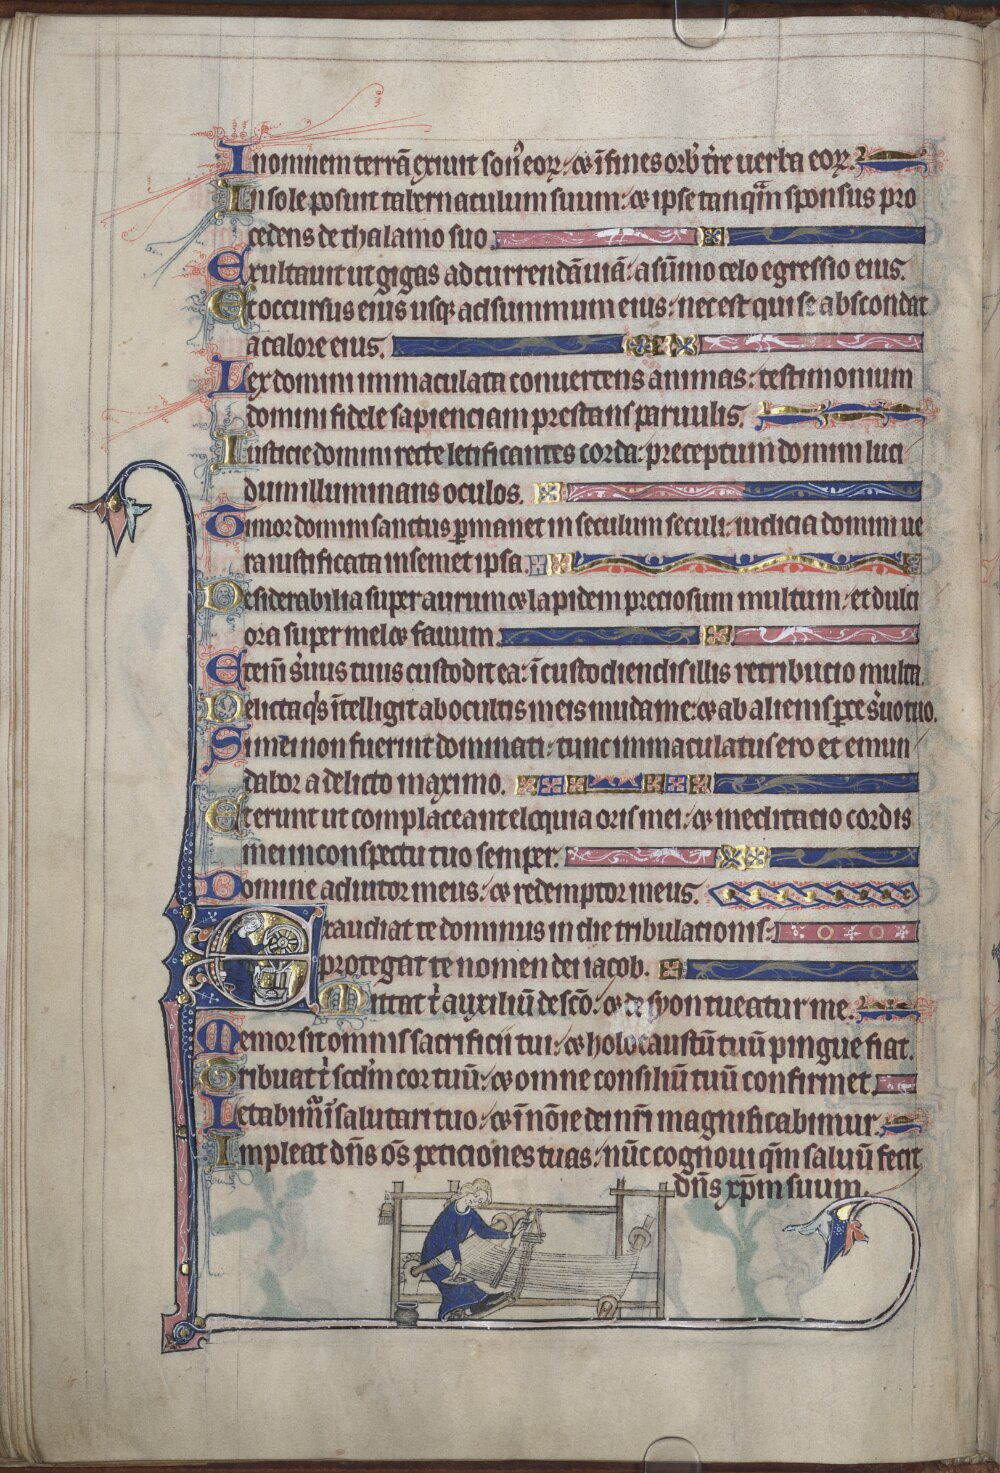 In omnem terrā exiuit son᾽ eoꝝ: ⁊ ī fines orb᾽ t᾽re uerba eoꝝ.
In sole posuit tabernaculum suum: ⁊ ipse tanqͣm sponsus pro
cedens de thalamo suo.
Exultauit ut gigas ad currendā uiā: a sūmo celo egressio eius.
Et occursus eius usqꝫ ad summum eius: nec est qui se abscondat
a calore eius.
Lex domini immaculata conuertens animas: testimonium
domini fidele sapienciam prestans paruulis.
Iusticie domini recte letificantes corda: preceptum domini luci
dum illuminans oculos.
Timor domini sanctus ꝑmanet in seculum seculi: iudicia domini ue
ra iustificata in semet ipsa.
Desiderabilia super aurum ⁊ lapidem preciosum multum: et dulci
ora super mel ⁊ fauum.
Eteni᷒ s᾽uus tuus custodit ea: ī custodiendis illis retribucio multa.
Delicta qͥs ītelligit ab ocultis meis munda me: ⁊ ab alienis ꝑce s᾽uo tuo.
Si mei non fuerint dominati: tunc immaculatus ero et emun
dabor a delicto maximo.
Et erunt ut complaceant eloquia oris mei: ⁊ meditacio cordis
mei in conspectu tuo semper.
Domine adiutor meus: ⁊ redemptor meus.
Exaudiat te dominus in die tribulacionis:
protegat te nomen dei iacob.
Mittat t᾽ auxiliū de sc̄o: ⁊ de syon tueatur me.
Memor sit omnis sacrificii tui: ⁊ holocaustū tuū pingue fiat.
Tribuat t᾽ scd̄m cor tuū: ⁊ omne consiliū tuū confirmet.
Letabim᾽ ī salutari tuo: ⁊ ī nōie dei nr̄i magnificabimur.
Impleat dn̄s om̄s peticiones tuas: nūc cognoui qm̄ saluū fecit
dn̄s xp̄m suum.